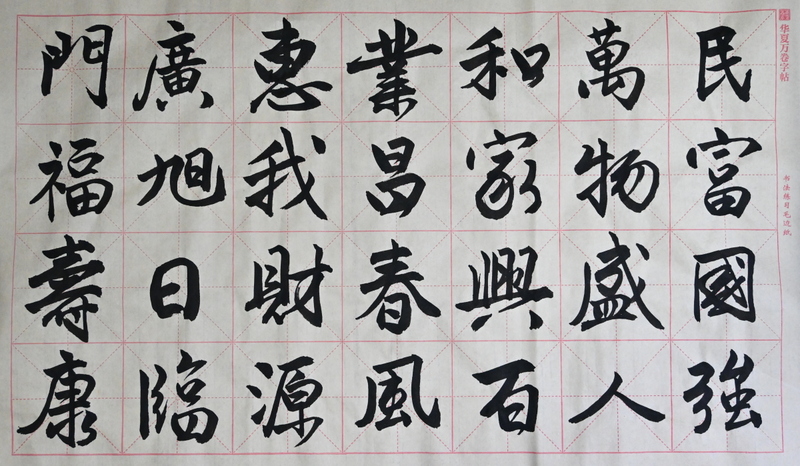 华夏万卷字帖
书法练习毛边纸
民富國強
萬物盛人
和家興百
業昌春風
惠我財源
廣旭日臨
門福壽康